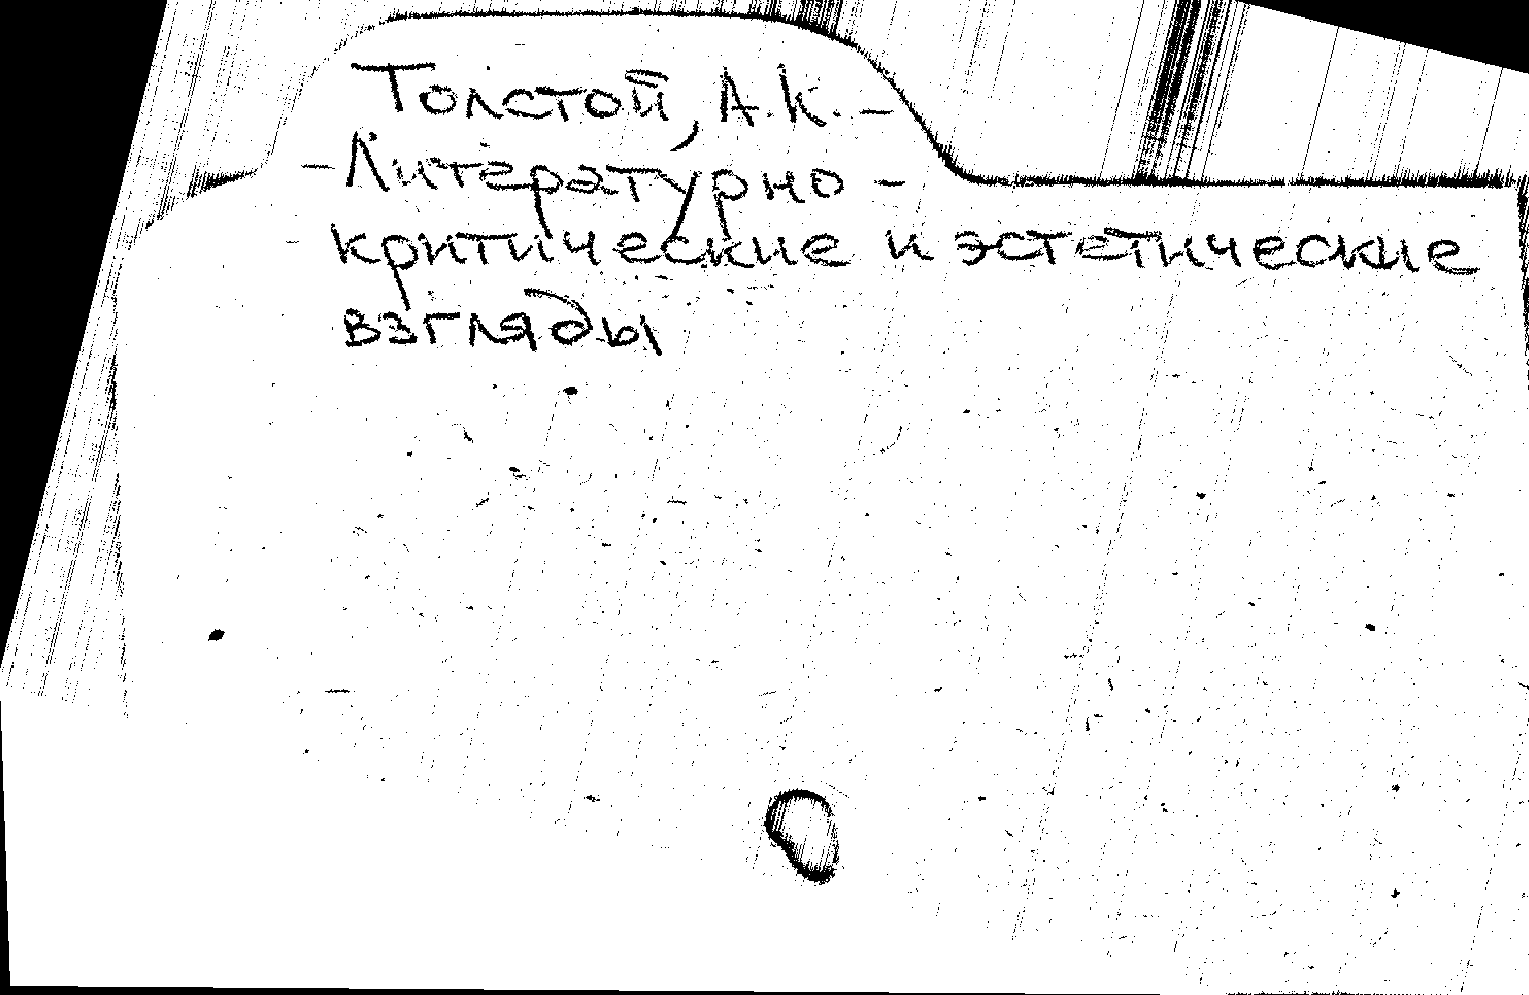 Толстой, А.К. –
– Литературно –
критические и эстетические
взгляды